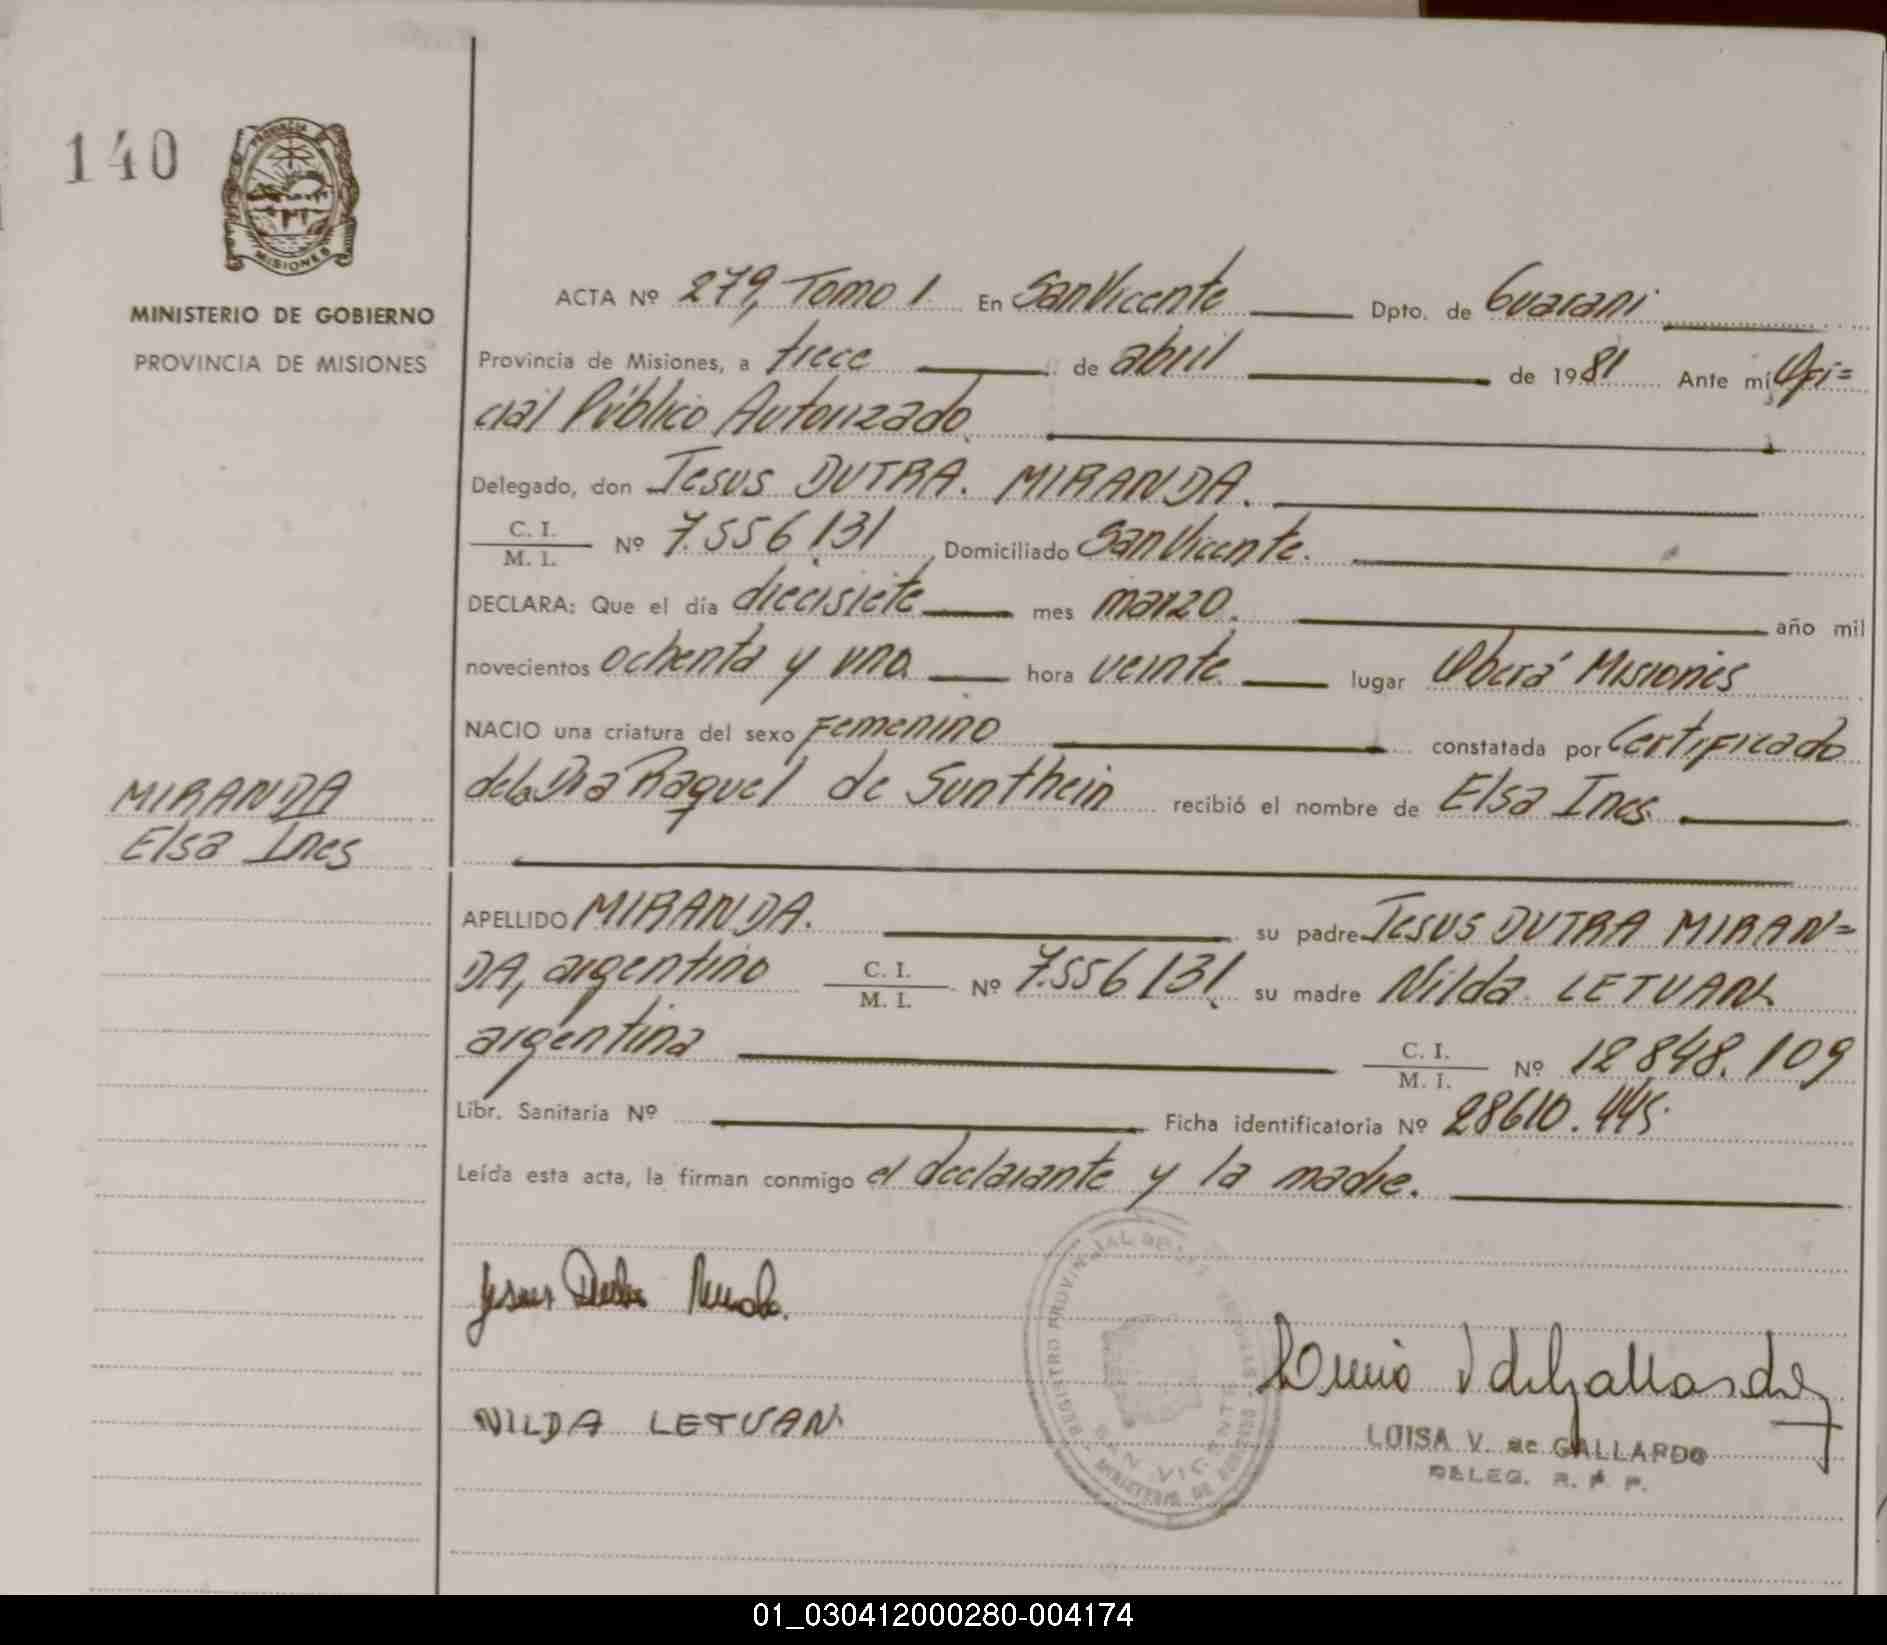 140
PROVINCIA DE
MISIONES
MINISTERIO DE GOBIERNO
PROVINCIA DE MISIONES
MIRANDA
Elsa Ines
ACTA Nº 279, Tomo 1. En San Vicente Dpto. de Guarani
Provincia de Misiones, a trece de abril de 1981 Ante mi Ofi=
cial Público Autorizado
Delegado, don Jesus DUTRA. MIRANDA.
C. I.
M. I. Nº 7.556.131, Domiciliado San Vicente.
DECLARA: Que el día diecisiete mes marzo. año mil
novecientos ochenta y uno hora veinte lugar Oberá Misiones
NACIO una criatura del sexo Femenino constatada por Certificado
de la Dra Raquel de Sunthein recibió el nombre de Elsa Ines.
APELLIDO MIRANDA. su padre Jesus DUTRA MIRAN=
DA, argentino C. I. M. I. Nº 7.556.131, su madre Nilda LETUAN.
argentina C. I. M. I. Nº 12848.109
Libr. Sanitaria Nº Ficha identificatoria Nº 28610.445.
Leída esta acta, la firman conmigo el declarante y la madre.
REGISTRO PROVINCIAL DE LAS PERSONAS
SAN VICENTE
MINISTERIO DE GOBIERNO
NILDA LETUAN
LUISA V. de GALLARDO
DELEG. R. P. P.
01_030412000280-004174